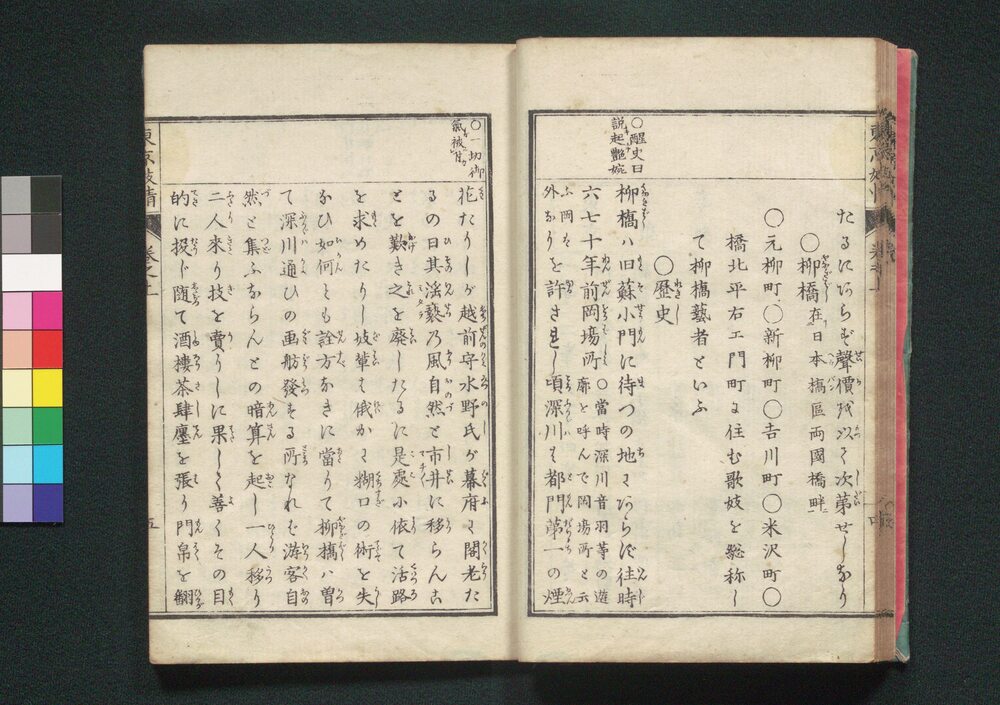 たるにあらず聲價を以て次第せしなり
〇柳橋 在日本橋區両國橋畔
〇元柳町〇新柳町〇吉川町〇米沢町〇
橋北平右エ門町に住む歌妓を総称し
て柳橋藝者といふ
〇歴史
〇醒史曰
説起艶婉
柳橋ハ旧蘇小門に待つの地にあらず往時
六七十年前岡場所 〇當時深川音羽等の遊
廓を呼んで岡場所と云
ふ岡は
外なりを許されし頃深川は都門第一の煙
〇一切御
氣被日
花たりしが越前守水野氏が幕府に閣老た
るの日其淫褻の風自然と市井に移らんこ
とを歎き之を廃したるに是處小依て活路
を求めたりし妓輩も俄かに糊口の術を失
なひ如何とも詮方なきに當りて柳橋ハ曽
て深川通ひの画舫發する所なれば游客自
然と集ふならんとの暗算を起し一人移り
二人来り技を賣りしに果して善くその目
的に投じ随て酒楼茶肆廛を張り門帛を翻
東京妓情
巻之上
五